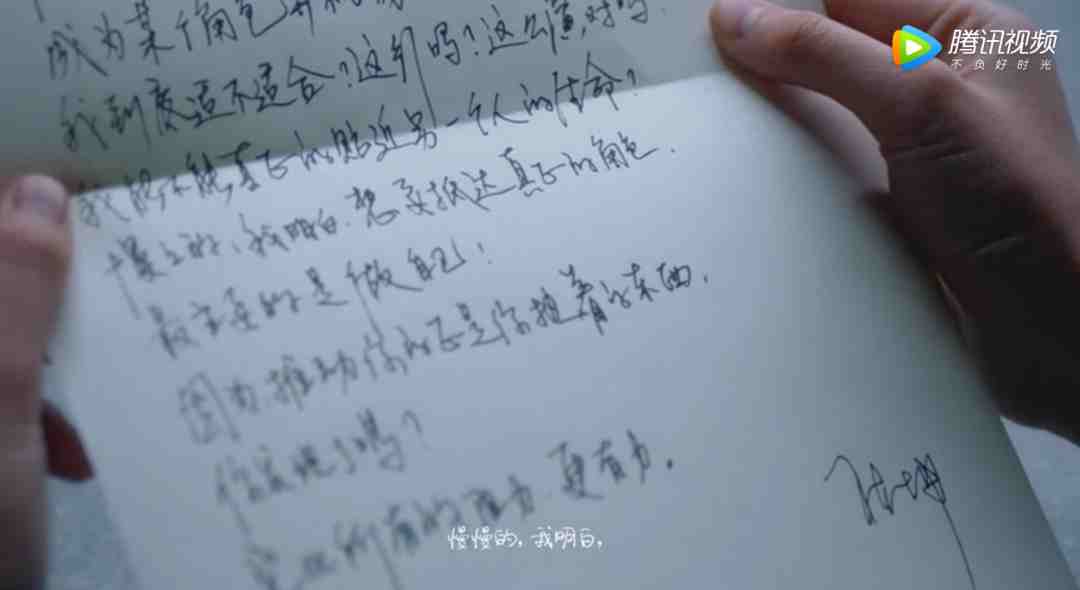 成为某个角色
我到底适不适合?这行吗?这么演,对吗
我能不能真正的贴近另一个人的生命?
慢慢的,我明白,想要抵达真正的角色,
最重要的是做自己!
因为推动你的正是你独着的东西,
你发现了吗?
它比所有的阻力,更有力。
陈坤
慢慢的,我明白,
腾讯视频
不负好时光